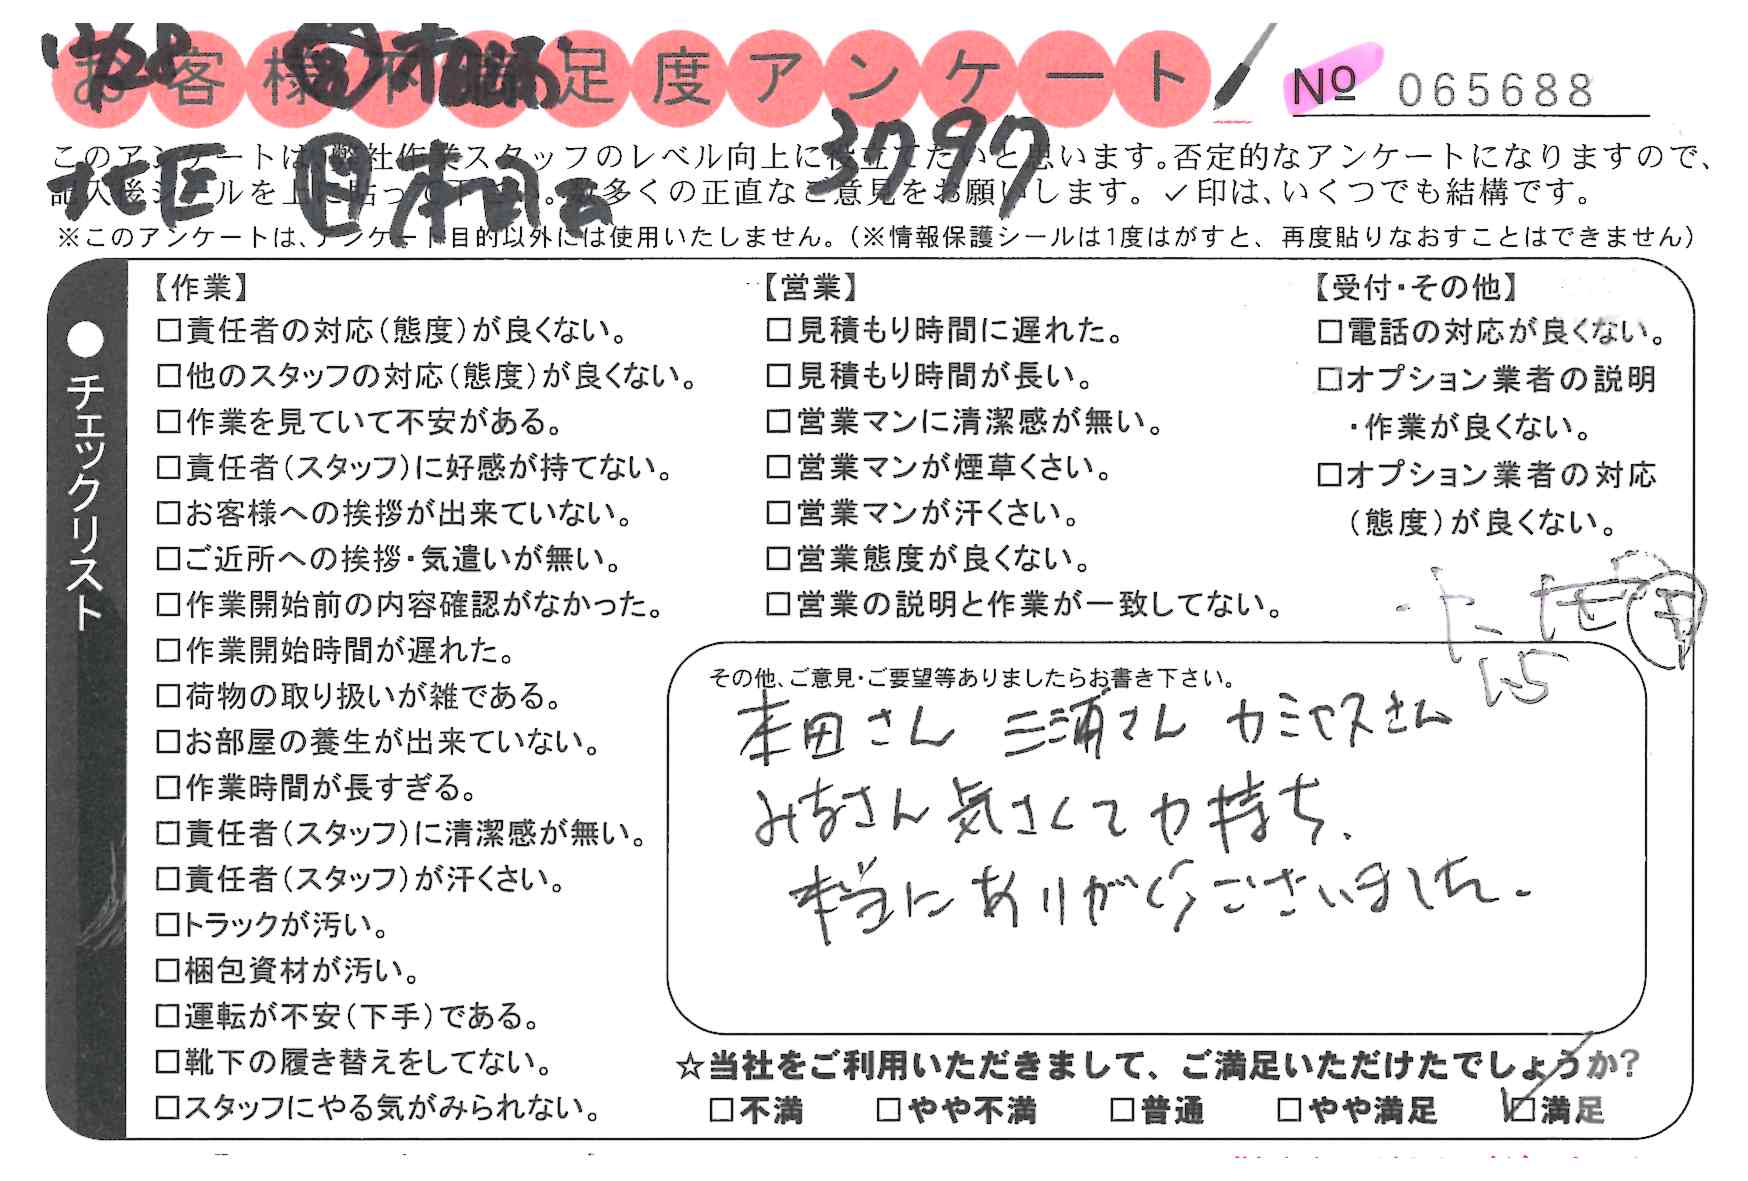 11/28
お客様不満足度アンケート
№ 065688
北区
3797
このアンケートは、弊社作業スタッフのレベル向上に役立てたいと思います。否定的なアンケートになりますので、
記入後シールを上に貼って下さい。数多くの正直なご意見をお願いします。✓印は、いくつでも結構です。
※このアンケートは、アンケート目的以外には使用いたしません。（※情報保護シールは1度はがすと、再度貼りなおすことはできません）
●チェックリスト
【作業】
□責任者の対応（態度）が良くない。
□他のスタッフの対応（態度）が良くない。
□作業を見ていて不安がある。
□責任者（スタッフ）に好感が持てない。
□お客様への挨拶が出来ていない。
□ご近所への挨拶・気遣いが無い。
□作業開始前の内容確認がなかった。
□作業開始時間が遅れた。
□荷物の取り扱いが雑である。
□お部屋の養生が出来ていない。
□作業時間が長すぎる。
□責任者（スタッフ）に清潔感が無い。
□責任者（スタッフ）が汗くさい。
□トラックが汚い。
□梱包資材が汚い。
□運転が不安（下手）である。
□靴下の履き替えをしてない。
□スタッフにやる気がみられない。
【営業】
□見積もり時間に遅れた。
□見積もり時間が長い。
□営業マンに清潔感が無い。
□営業マンが煙草くさい。
□営業マンが汗くさい。
□営業態度が良くない。
□営業の説明と作業が一致してない。
【受付・その他】
□電話の対応が良くない。
□オプション業者の説明
・作業が良くない。
□オプション業者の対応
（態度）が良くない。
その他、ご意見・ご要望等ありましたらお書き下さい。
本田さん 三浦さん カミヤスさん
みなさん気さくで力持ち、
本当にありがとうございました。
☆当社をご利用いただきまして、ご満足いただけたでしょうか？
□不満 □やや不満 □普通 □やや満足 ☑満足